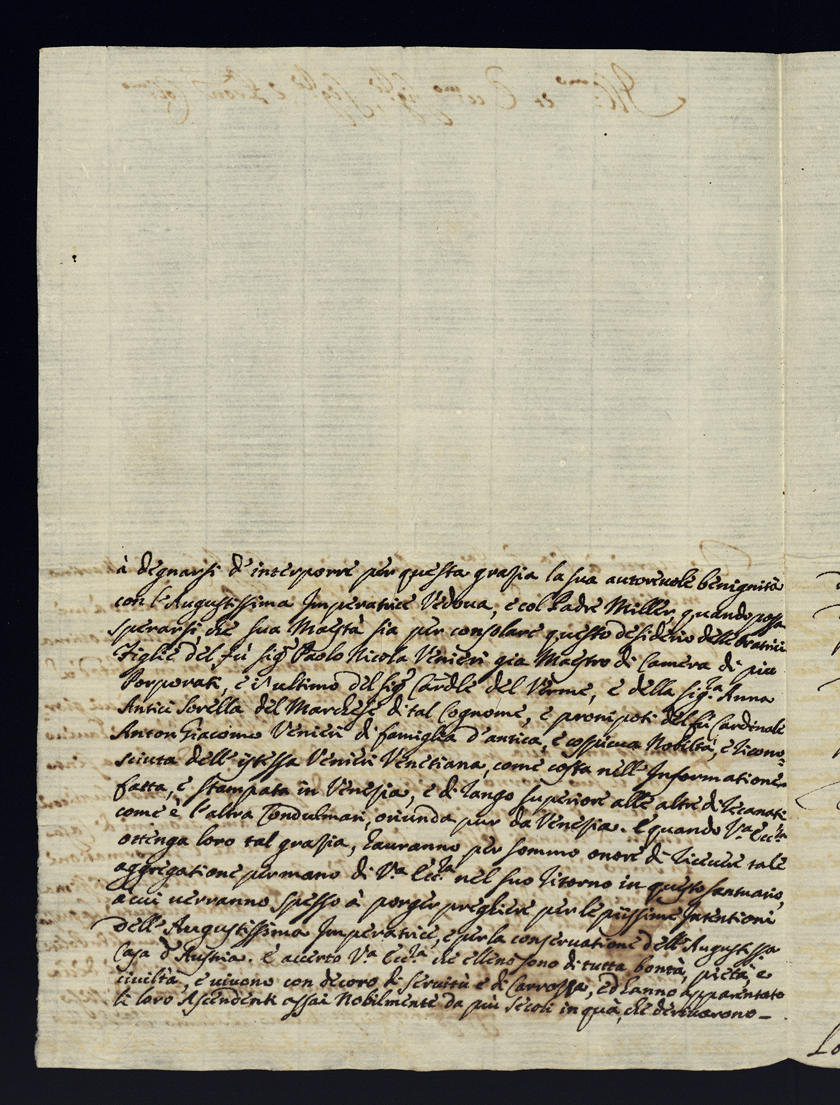 à degnarsi d'interporre per questa grazia la sua autorevole benignità
con l'Augustissima Imperatrice Vedova, e col Padre Miller quando possa
sperarsi, che sua Maestà sia per consolare questo desiderio delle
Figlie del fù sig.r Paolo Nicola Venieri gia Maestro di Camera di piu
Porporati, e l'ultimo del sig.r Card.le del Verme, e della sig.ra Anna
Antici sorella del Marchese di tal Cognome, e pronipoti del fù Cardinale
Anton Giacomo Venieri di famiglia d'antica, e cospicua Nobiltà, e ricono-
sciuta dell'istessa Venieri Venetiana, come costa nell'Informatione
fatta, e stampata in Venezia, e di rango superiore alle altre di Recanati
come è l'altra Tondulmari, oriunda pur da Venezia. E quando V.a Ecc.za
ottenga loro tal grazia, hauranno per sommo onore di riceuere tale
aggregatione per mano di V.a Ecc.za nel suo ritorno in questo santuario,
à cui uerranno spesso à porger preghiere per le piissime Intentioni
dell'Augustissima Imperatrice, e per la conseruatione dell'Augustissa
Casa d'Austria. E accerto V.a Ecc.za che elleno sono di tutta bontà, pietà, e
ciuiltà, e uiuono con decoro di seruitù e di Carrozza, ed hanno apparentato
li loro Ascendenti assai Nobilmente da più secoli in quà, che deriuorono